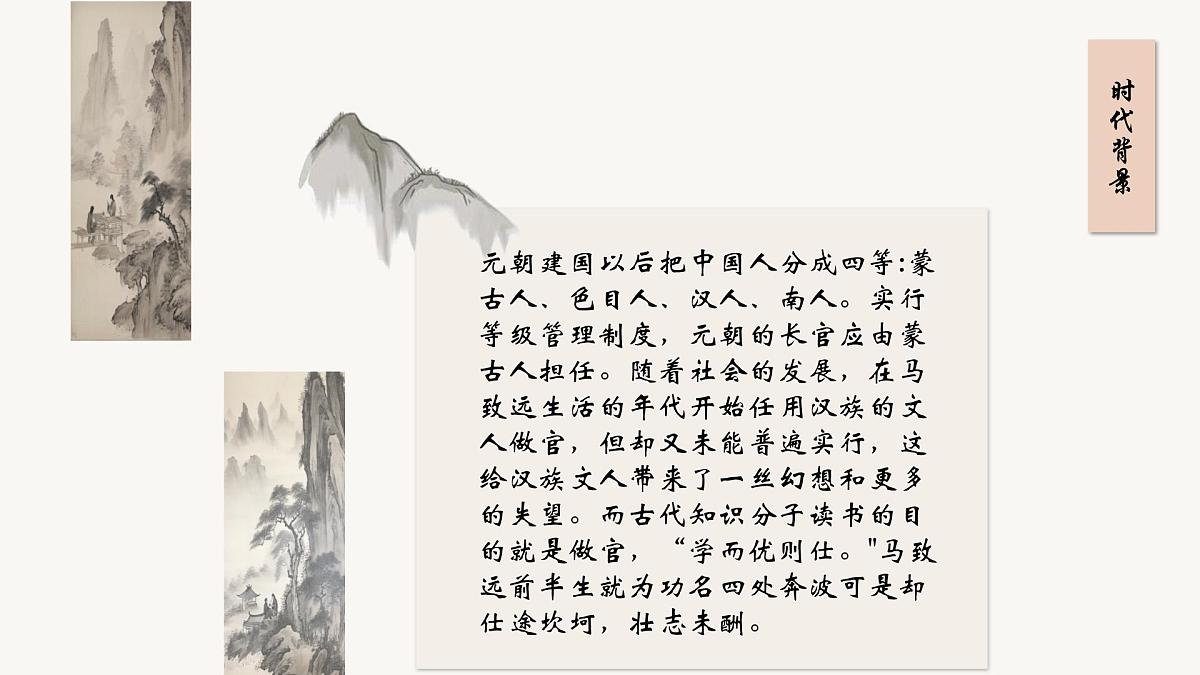 时代背景
元朝建国以后把中国人分成四等:蒙
古人、色目人、汉人、南人。实行
等级管理制度，元朝的长官应由蒙
古人担任。随着社会的发展，在马
致远生活的年代开始任用汉族的文
人做官，但却又未能普遍实行，这
给汉族文人带来了一丝幻想和更多
的失望。而古代知识分子读书的目
的就是做官，“学而优则仕。"马致
远前半生就为功名四处奔波可是却
仕途坎坷，壮志未酬。